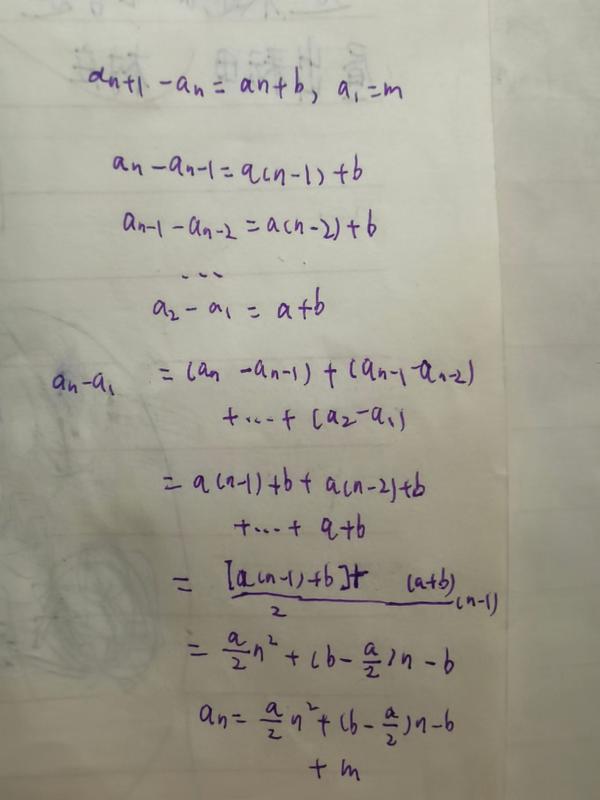 aₙ₊₁ - aₙ = an + b, a₁ = m
aₙ - aₙ₋₁ = a(n-1) + b
aₙ₋₁ - aₙ₋₂ = a(n-2) + b
...
a₂ - a₁ = a + b
aₙ - a₁ = (aₙ - aₙ₋₁) + (aₙ₋₁ - aₙ₋₂)
+ ... + (a₂ - a₁)
= a(n-1) + b + a(n-2) + b
+ ... + a + b
= [a(n-1) + b] + (a+b) / 2 (n-1)
= a/2 n² + (b - a/2)n - b
aₙ = a/2 n² + (b - a/2)n - b
+ m